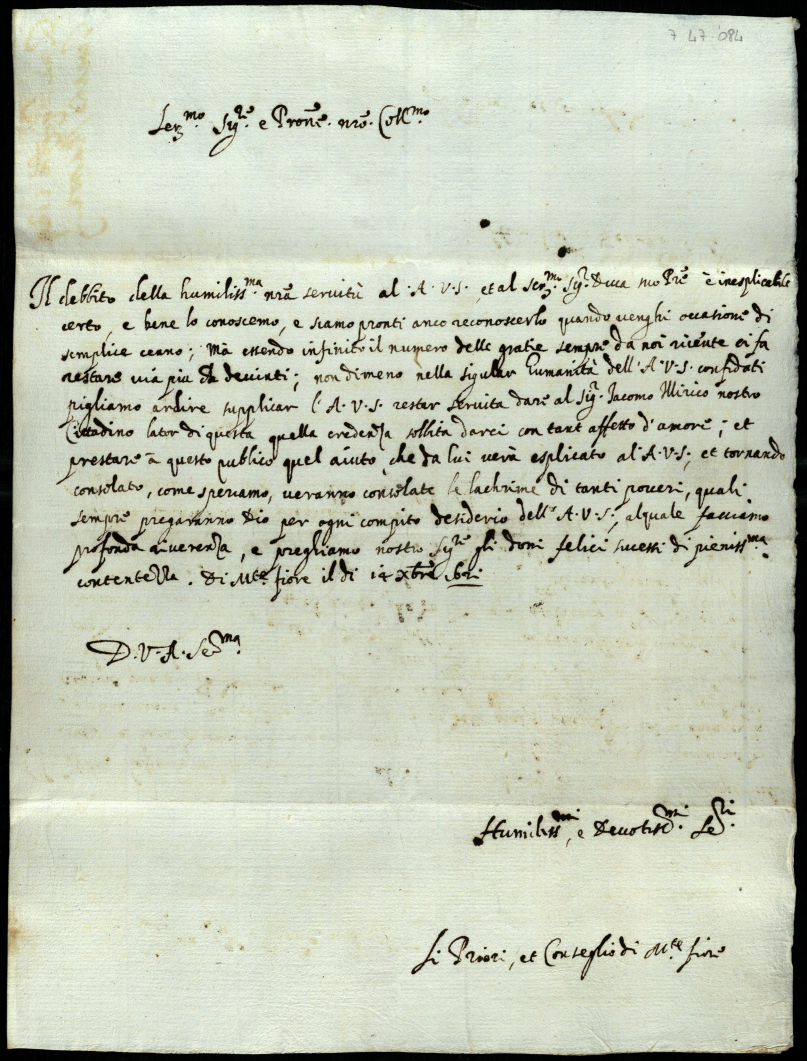 7 47 084
Ser.mo Sig.re e Prone. nro. Coll.mo
Il debbito della humiliss.ma nra servitù al .A.V.S., et al ser.mo Sig.r Duca suo Pre è inesplicabile
certo, e bene lo conoscemo, e siamo pronti anco reconoscerlo quando venghi occasione di
semplice cenno; Mà essendo infinito il numero delle gratie sempre da noi ricevte ci fa
restare via più devinti; non dimeno nella sigular humanità dell'A.V.S. confidati
pigliamo ardire supplicar l'A.V.S. restar servita dare al Sig.r Iacomo Illirico nostro
Cittadino lator di questa quella credenza sollita darci con tant affetto d'amore; et
prestare à questo publico quel aiuto, che da lui verà esplicato al'A.V.S; et tornando
consolato, come speriamo, veranno consolate le lachrime di tanti poveri, quali
sempre pregaranno Dio per ogni compito desiderio dell'A.V.S., alquale facciamo
profonda riverenza, e preghiamo nostro Sig.re gli doni felici sucessi di pieniss.ma
contentezza. Di M.te fiore il di 14 Xbre 1621
D.V.A. Se.ma
Humiliss.mi, e Devotiss.mi Se.ri
Li Priori, et Conseglio di M.te fiore